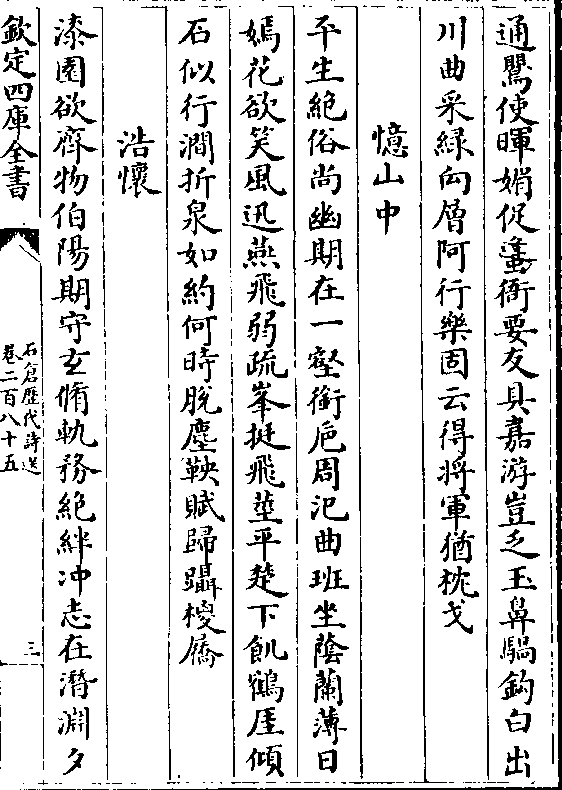 通驚使暉娟促蚤衙要友具嘉游豈乏玉鼻騧鈎白出
川曲采緑向層阿行樂固云得將軍猶枕戈
憶山中
平生絶俗尚幽期在一壑銜巵周汜曲班坐蔭蘭薄日
嫣花欲笑風迅燕飛弱疏峯挺飛莖平楚下飢鶴厓傾
石似行澗折泉如約何時脱塵鞅賦歸躡椶屩
浩懷
漆園欲齊物伯陽期守玄脩軌務絶絆冲志在潛淵夕
欽定四庫全書
石倉歴代詩選
卷二百八十五
三